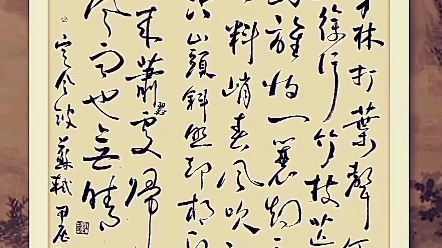 林打葉聲
徐行竹杖芒
誰怕一蓑烟
料峭春風吹
山頭斜照却相
來蕭瑟處歸
風雨也無晴
定風波 蘇軾 甲辰